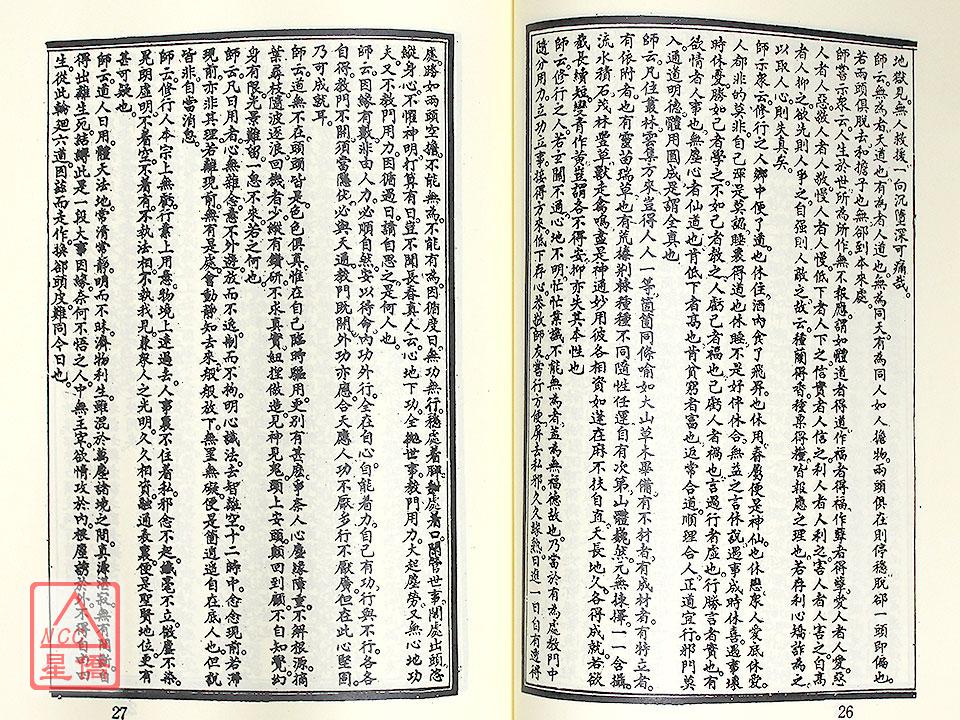 地獄見無人救援一向沉墮深可痛哉
師云無為者天道也有為者人道也無為同天有為同人如人擔物兩頭俱在則停穩脫卻一頭即偏也
若兩頭俱脫去和擔子也無卻到本來處
師嘗示眾云人生於世所為所作無不報應謂如體道者得道作福者得福作孽者得孽愛人者人愛惡
人者人惡敬人者人敬慢人者人慢低下者人下之信實者人信之利人者人利之害人者人害之自高
者人抑之欲先則人爭之自強則人敵之故云種蘭得香種粟得糧皆報應之理也若存利心矯詐為之
以取人心則失真矣
師示眾云修行之人鄉中便了道也休住酒肉食了飛昇也休用眷屬便是神仙也休戀眾人愛底休愛
人都非的莫非自己彈是莫說睡裏得道也休睡不是好伴休合無益之言休說遇事成時休喜遇事壞
時休憂勝如己者學之不如己者教之人虧己者福也己虧人者禍也言過行者虛也行勝言者實也有
欲情者人事也無塵心者仙道也肯低下者高也肯貧窮者富也返常合道順理合人正道宜行邪門莫
入通道明德體用圓成是謂全真也
師云凡住叢林雲集方來豈得人人一等箇箇同條喻如大山草木畢備有不材者有成材者有特立者
有依附者也有靈苗瑞草也有荒榛荊棘種種不同隨性任運自有次第山體巍然元無揀擇一一含攝
流水積石茂林豐草獸走禽鳴盡是神通妙用彼各相資如蓬在麻不扶自直天長地久各得成就若欲
截長續短變青作黃豈謂各不得安抑亦失其本性也
師云修行之人若玄關不通心地不明忙忙業識不能無為者蓋為無福德故也乃當於有為處教門中
隨分用力立功立事接待方來低下存心恭敬師友常行方便屏去私邪久久緣熟日進一日自有透得
處路如兩頭空擔不能無為不能有為因循度日無功無行穩處著口閑管世事鬧處出頭恣
縱身心不懼神明打算有日豈不聞長春真人云心地下功全拋世事教門用力大起塵勞又無心地功
夫又不教門用力因循過日請自思之是何人也
師云因緣有數非由人力必順自然安以待命內功外行全在自心自能着力自己有功行與不行各各
自得教門不關須當隱伏必與天通教門既開外功亦應合天應人功不厭多行不厭廣但在此心堅固
乃可成就耳
師云道無不在頭頭皆是色色俱真惟在自己臨時驅用更別有甚麼事奈人心塵緣障重不解根源摘
葉尋枝隨波逐浪回機者少縱有鑽研不求真實妲捏做造見神見鬼頭上安頭顧回到顧不自知覺幻
身有限光景難留一息不來若之何也
師云凡日用者心無雜念意不外遊放而不逸制而不拘明心識法去智離空十二時中念念現前若滯
現前亦非其理若離現前無有是處會動靜知去來般般放下無罣無礙便是箇逍遙自在底人也但說
皆非自當消息
師云修行人本宗上無虧行業上用慈物境上達過去人事裏不住着私邪念不起纖毫不立微塵不染
晃朗虛明不着空不着有不執法相不執我見兼眾人之光明久久相資融通表裏便是聖賢地位更有
甚可疑也
師云道人日用體天法地常清常靜明而不昧濟物利生雖混於萬塵諸境之間真源湛寂無有間斷
得出離生死話縛此是一段大事因緣奈何不悟之人中無主宰欲情攻於內根塵誘於外不得自由
生從此輪廻六道因茲而走作換卻頭皮難同今日也
NCC
星僑
27
26